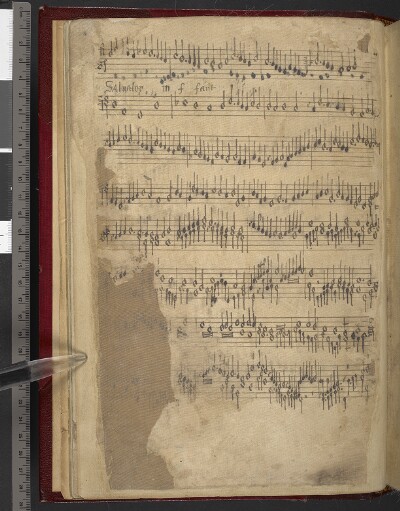 Salvator in f faut